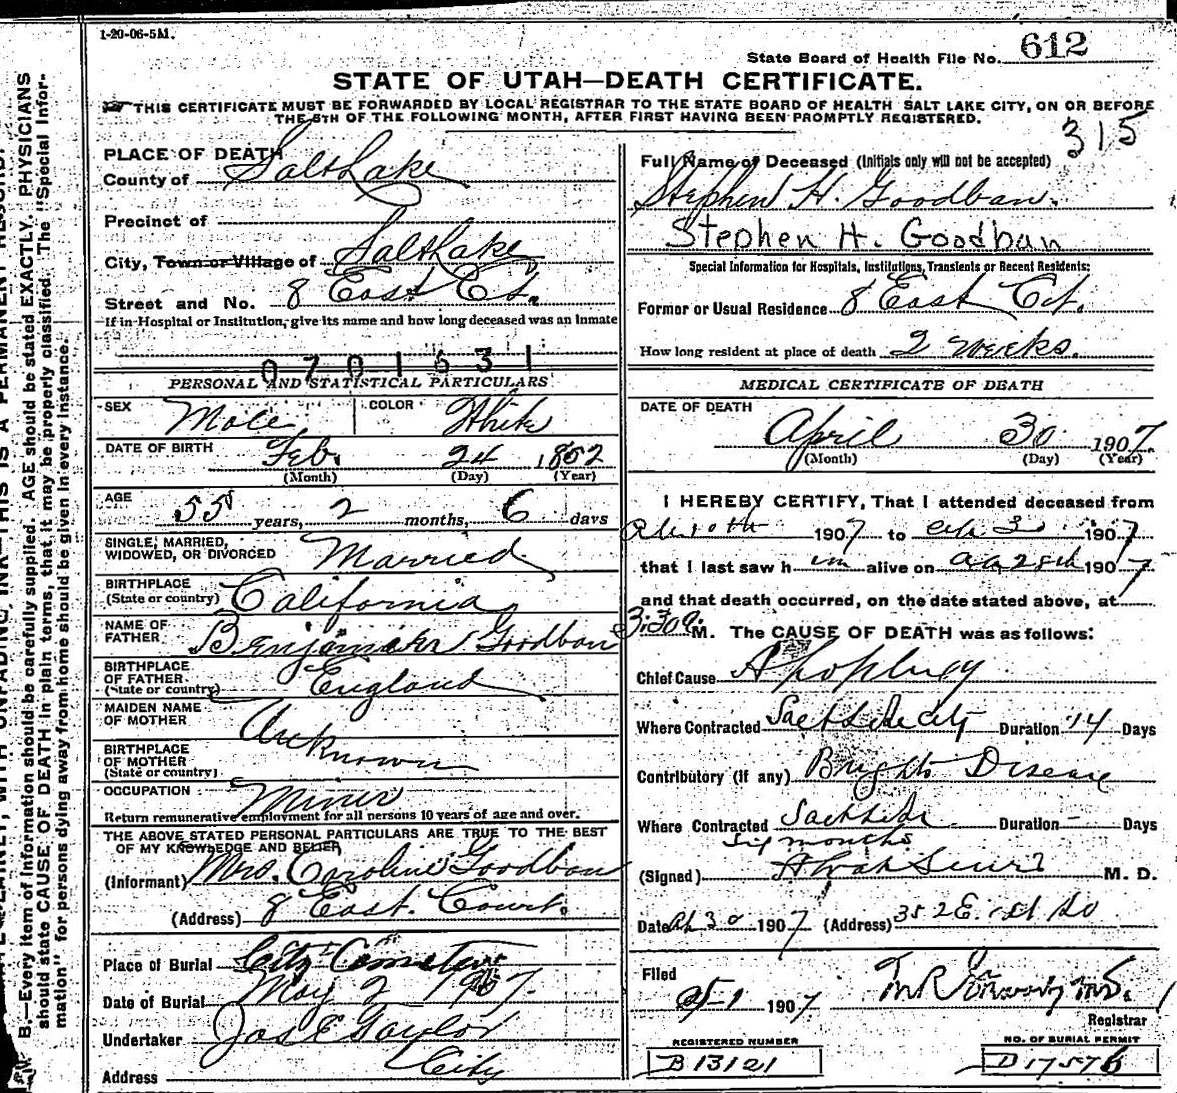 1-20-06-5M.
State Board of Health File No. 612
STATE OF UTAH—DEATH CERTIFICATE.
THIS CERTIFICATE MUST BE FORWARDED BY LOCAL REGISTRAR TO THE STATE BOARD OF HEALTH SALT LAKE CITY, ON OR BEFORE
THE 5TH OF THE FOLLOWING MONTH, AFTER FIRST HAVING BEEN PROMPTLY REGISTERED.
315
PLACE OF DEATH
County of Salt Lake
Precinct of
City, Town or Village of Salt Lake
Street and No. 8 East Ct.
If in Hospital or Institution, give its name and how long deceased was an inmate
0701631
PERSONAL AND STATISTICAL PARTICULARS
SEX Male COLOR White
DATE OF BIRTH Feb. 24 1852
(Month) (Day) (Year)
AGE 55 years, 2 months, 6 days
SINGLE, MARRIED,
WIDOWED, OR DIVORCED Married
BIRTHPLACE
(State or country) California
NAME OF
FATHER Benjamin Goodban
BIRTHPLACE
OF FATHER
(State or country) England
MAIDEN NAME
OF MOTHER Unknown
BIRTHPLACE
OF MOTHER
(State or country)
OCCUPATION Miner
Return remunerative employment for all persons 10 years of age and over.
THE ABOVE STATED PERSONAL PARTICULARS ARE TRUE TO THE BEST
OF MY KNOWLEDGE AND BELIEF
(Informant) Mrs. Caroline Goodban
(Address) 8 East. Court.
Place of Burial City Cemetery
Date of Burial May 2 1907.
Undertaker Jos E Taylor
Address City
Full Name of Deceased (Initials only will not be accepted)
Stephen H. Goodban.
Stephen H. Goodban
Special Information for Hospitals, Institutions, Transients or Recent Residents:
Former or Usual Residence 8 East Ct.
How long resident at place of death 2 weeks.
MEDICAL CERTIFICATE OF DEATH
DATE OF DEATH
April 30 1907.
(Month) (Day) (Year)
I HEREBY CERTIFY, That I attended deceased from
1907 to 30 1907
that I last saw him alive on 28th 1907
and that death occurred, on the date stated above, at
3:30a M. The CAUSE OF DEATH was as follows:
Chief Cause Apoplexy
Where Contracted Salt Lake City Duration 14 Days
Contributory (if any) Brights Disease
Where Contracted Salt Lake Duration - Days
Six months
(Signed) M. D.
Date Ap 30 1907 (Address) 352 E. 1st So
Filed
5-1 1907
Registrar
REGISTERED NUMBER
B 13121
NO. OF BURIAL PERMIT
D 17576
B.—Every item of information should be carefully supplied. AGE should be stated EXACTLY. PHYSICIANS
should state CAUSE OF DEATH in plain terms, that it may be properly classified. The "Special Infor-
mation" for persons dying away from home should be given in every instance.